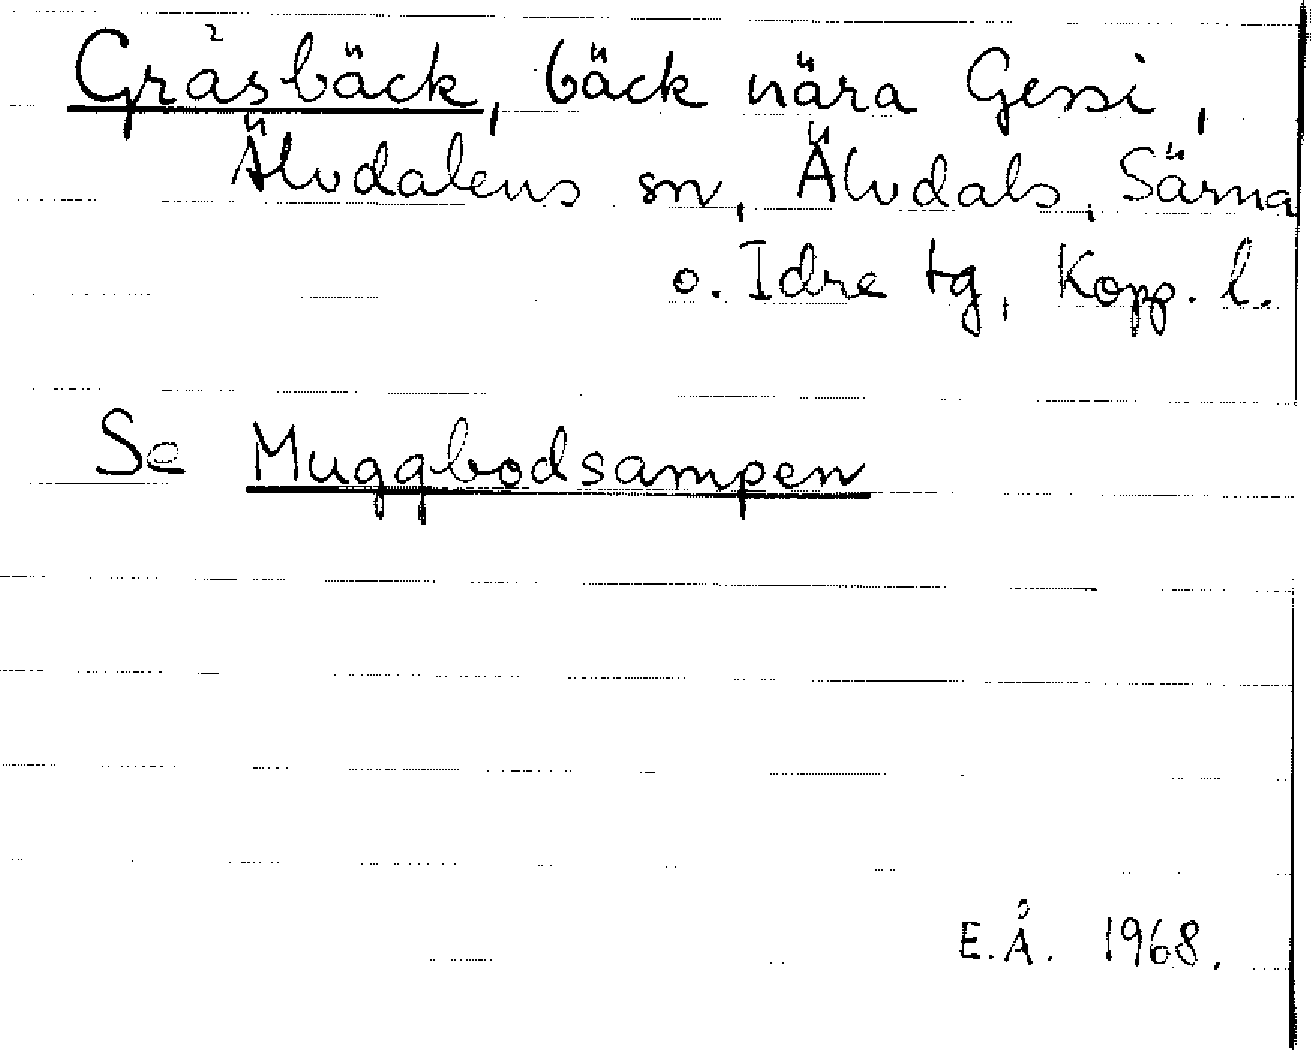 Gråsbäck, bäck nära Gessi,
Älvdalens sn, Älvdals, Särna
o. Idre tg, Kopp. l.
Se Muggbodsampen
E.Å. 1968.